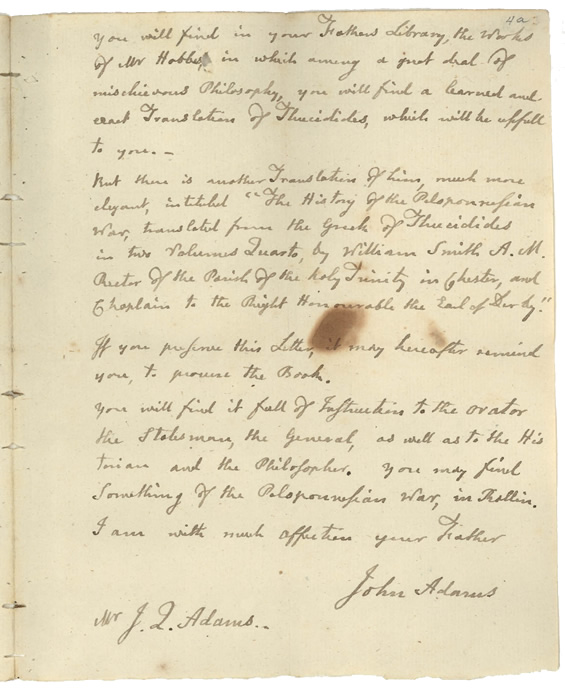 4a.
you will find in your Fathers Library, the Works
of Mr Hobbes, in which among a great deal of
mischievous Philosophy, you will find a learned and
exact Translation of Thucidides, which will be usefull
to you. —
But there is another Translation of him, much more
elegant, intitled "The History of the Peloponnesian
War, translated from the Greek of Thucidides
in two Volumes Quarto, by William Smith A. M.
Rector of the Parish of the holy Trinity in Chester, and
Chaplain to the Right Honourable the Earl of Derby."
If you preserve this Letter, it may hereafter remind
you, to procure the Book.
You will find it full of Instruction to the Orator
the Statesman, the General, as well as to the His
torian and the Philosopher. You may find
Something of the Peloponnesian War, in Rollin.
I am with much affection your Father
John Adams
Mr J. Q. Adams.-